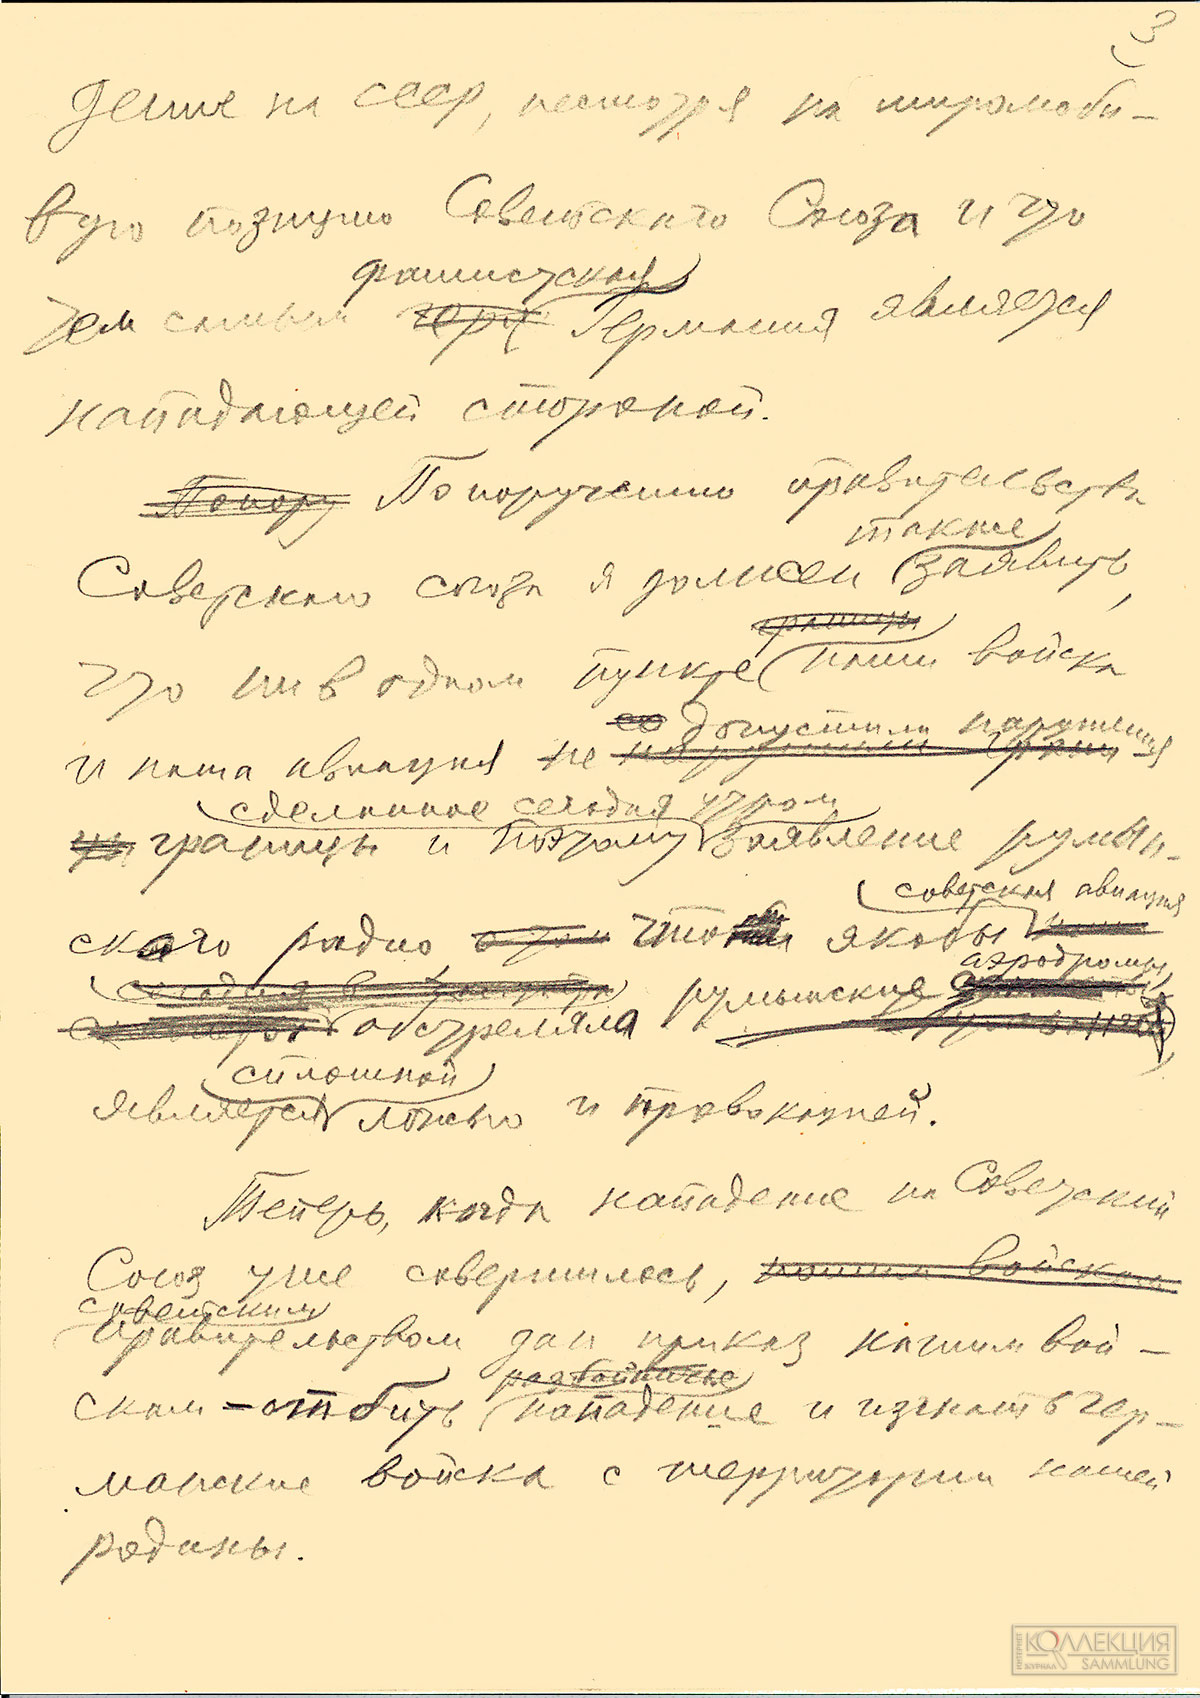 3
дение на СССР, несмотря на миролюби-
вую позицию Советского Союза и что
фашистская
тем самым Германия является
нападающей стороной.
Попору По поручению правительства
также
Советского союза я должен заявить,
границы
что ни в одном пункте наши войска
допустили нарушения
и наша авиация не нарушили грани
сделанное сегодня утром
цы границы и поэтому заявление румын-
советская авиация
ского радио что якобы
аэродромы,
сегодня в обстреляла румынские
сплошной
является ложью и провокацией.
Теперь, когда нападение на Советский
Союз уже совершилось, нашим войскам
советским
правительством дан приказ нашим вой-
разбойничье
скам – отбить нападение и изгнать гер-
манские войска с территории нашей
родины.
ИНТЕРНЕТ ЖУРНАЛ
КОЛЛЕКЦИЯ
SAMMLUNG